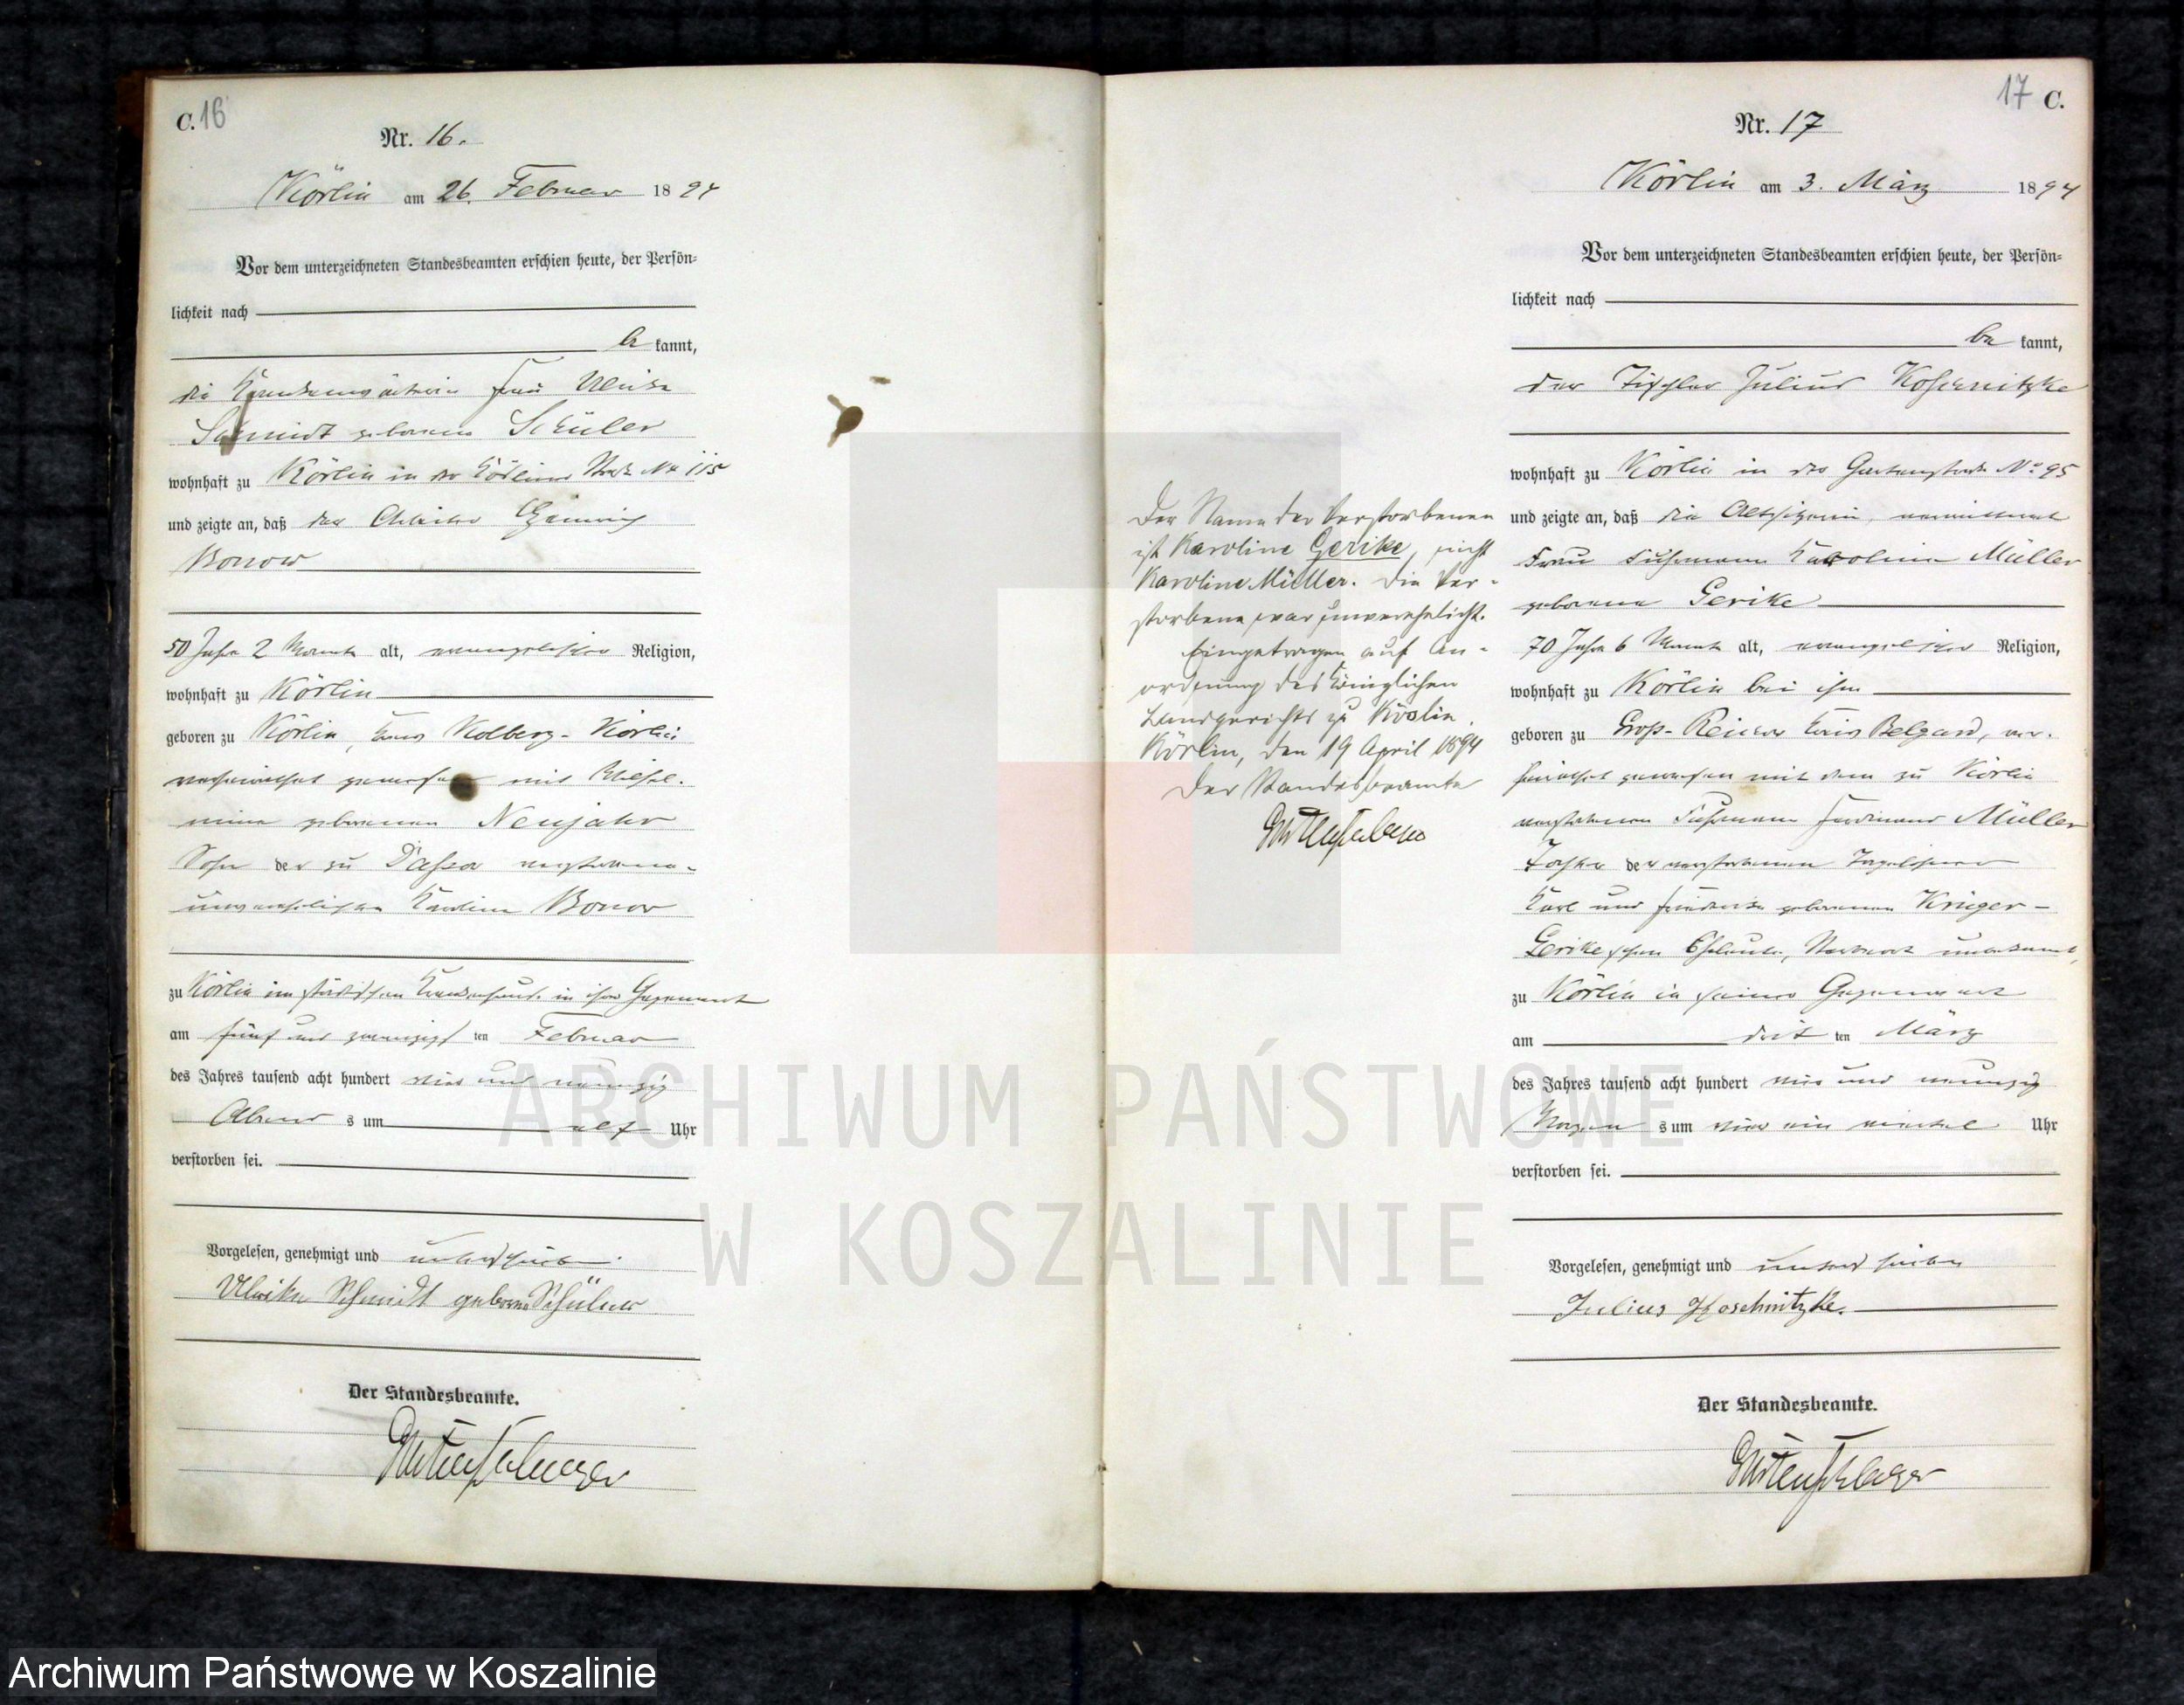 C. 16
Nr. 16.
Körlin am 26. Februar 1894
Vor dem unterzeichneten Standesbeamten erschien heute, der Persön-
lichkeit nach
be kannt,
die Krankenwärterin Frau Ulrike
Schmidt geborene Schüler
wohnhaft zu Körlin in der Cösliner Straße No 115
und zeigte an, daß der Arbeiter Heinrich
Bonow
50 Jahre 2 Monate alt, evangelischer Religion,
wohnhaft zu Körlin
geboren zu Körlin, Kreis Kolberg-Körlin
verheirathet gewesen mit Wilhel-
mine geborenen Neujahr
Sohn der zu Passer verstorbenen
unverehelichten Karoline Bonow
zu Körlin im städtischen Krankenhause in ihrer Gegenwart
am fünf und zwanzigsten Februar
des Jahres tausend acht hundert vier und neunzig
Abends um elf Uhr
verstorben sei.
Vorgelesen, genehmigt und unterschrieben.
Ulrike Schmidt geborne Schüler
Der Standesbeamte.
17 C.
Nr. 17
Körlin am 3. März 1894
Vor dem unterzeichneten Standesbeamten erschien heute, der Persön-
lichkeit nach
be kannt,
der Tischler Julius Koschnitzke
wohnhaft zu Körlin in der Gartenstraße No 95
und zeigte an, daß die Altsitzerin, verwittwete
Frau Fuhrmann Karoline Müller
geborene Gerike
70 Jahre 6 Monate alt, evangelischer Religion,
wohnhaft zu Körlin bei ihm
geboren zu Groß-Reichow Kreis Belgard, ver-
heirathet gewesen mit dem zu Körlin
verstorbenen Fuhrmann Ferdinand Müller
Tochter der verstorbenen Tagelöhner
Karl und Friederike geborenen Krüger-
Gerikeschen Eheleute, Sterbeort unbekannt,
zu Körlin in seiner Gegenwart
am dritten März
des Jahres tausend acht hundert vier und neunzig
Morgens um vier ein viertel Uhr
verstorben sei.
Vorgelesen, genehmigt und unterschrieben
Julius Koschnitzke.
Der Standesbeamte.
Der Name der Verstorbenen
ist Karoline Gerike, nicht
Karoline Müller. Die Ver-
storbene war unverehelicht.
Eingetragen auf An-
ordnung des Königlichen
Landgerichts zu Köslin.
Körlin, den 19 April 1894
Der Standesbeamte
ARCHIWUM PAŃSTWOWE
W KOSZALINIE
Archiwum Państwowe w Koszalinie